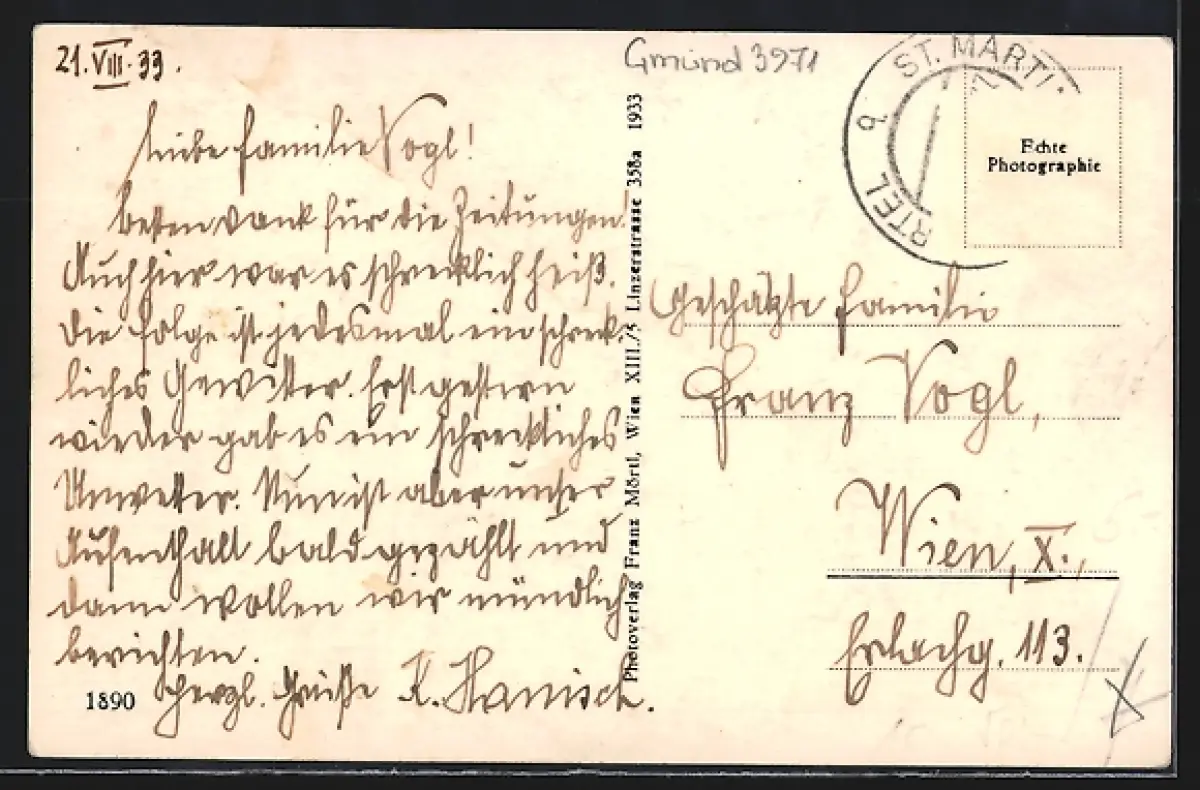 21.VIII.33.
Liebe Familie Vogl!
Besten Dank für die Zeitungen!
Auch hier war es schrecklich heiß.
Die Folge ist jedesmal ein schreck-
liches Gewitter. Erst gestern
wieder gab es ein schreckliches
Unwetter. Nun ist aber unser
Aufenthalt bald gezählt und
dann wollen wir mündlich
berichten.
Herzl. Grüße K. Hanisch.
1890
Photoverlag Franz Mörtl, Wien XIII./5 Linzerstrasse 358a 1933
Gmünd 3971
ST. MARTI
RTEL
Echte
Photographie
Geschätzte Familie
Franz Vogl,
Wien, X.,
Erlachg. 113.